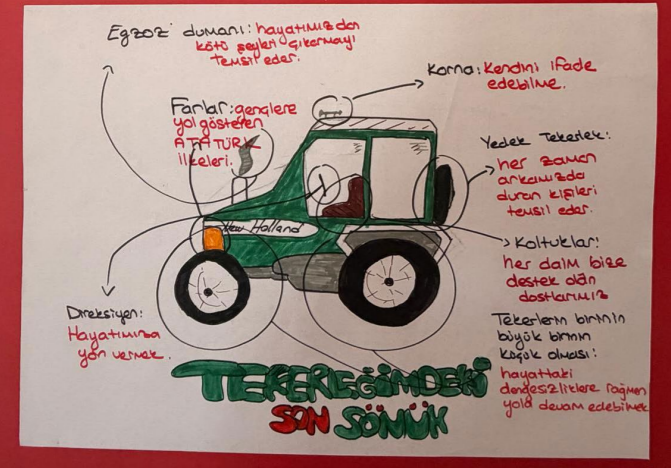 Egzoz dumanı: hayatımızdan
kötü şeyleri çıkarmayı
temsil eder.
Korna: Kendini ifade
edebilme.
Farlar: gençlere
yol gösteren
ATATÜRK
ilkeleri.
Yedek Tekerlek:
her zaman
arkamızda
duran kişileri
temsil eder.
New Holland
Koltuklar:
her daim bize
destek olan
dostlarımız
Direksiyon:
Hayatımıza
yön vermek.
Tekerlerin birinin
büyük birinin
küçük olması:
hayattaki
dengesizliklere rağmen
yola devam edebilmek
TEKERLEĞİMDEKİ
SON SÖNÜK